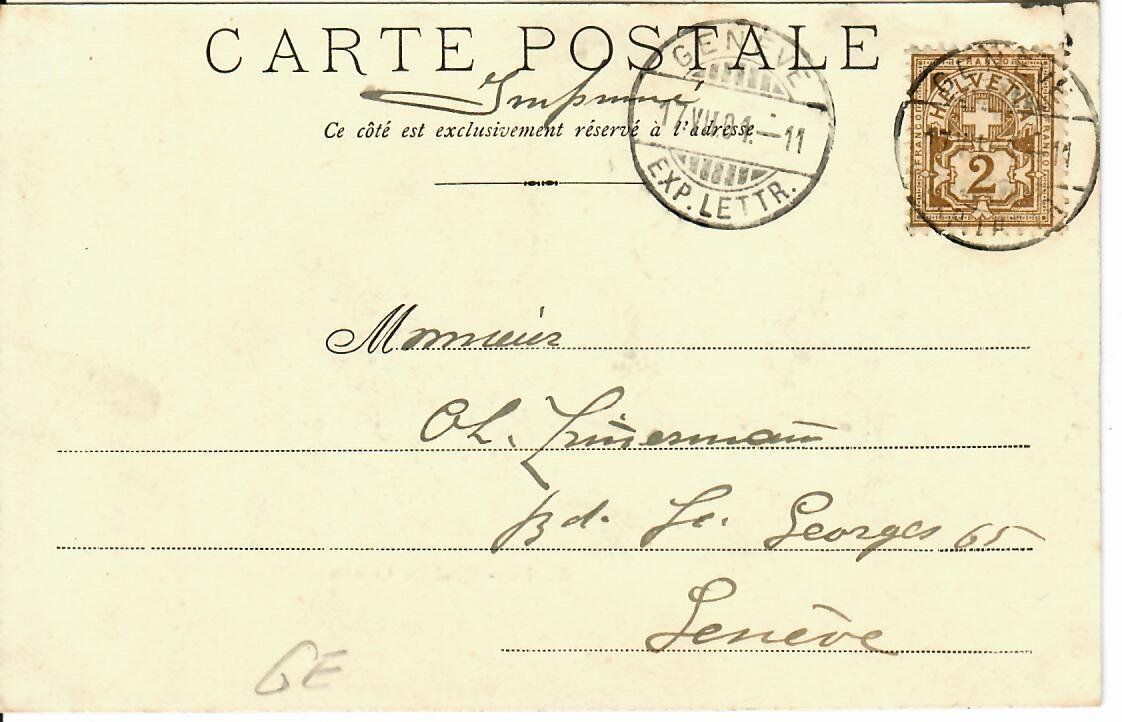 CARTE POSTALE
Imprimé
Ce côté est exclusivement réservé à l'adresse
GENÈVE
17.VII.04.-11
EXP. LETTR.
HELVETIA
FRANCO
FRANCO
FRANCO
2
Monsieur
Ch. Zimermann
Bd. St. Georges 65
Genève
GE